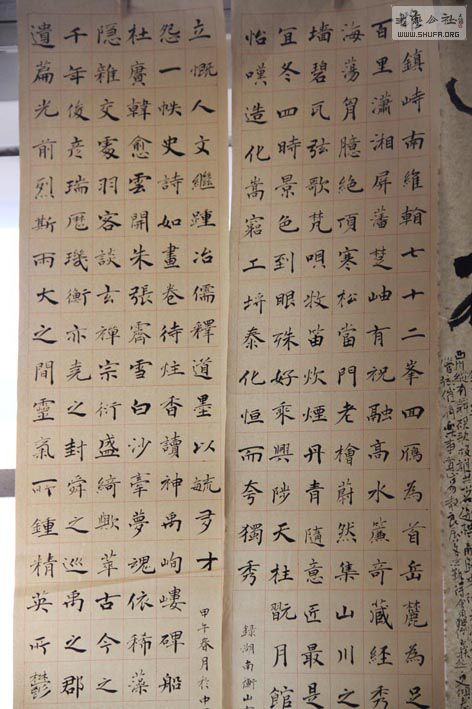 鎮峙南維翰七十二峯四雁為首岳麓為足
百里瀟湘屏藩楚岫有祝融高水簾奇藏經秀
海蕩胷臆絶頂寒松當門老檜蔚然集山川之
墻碧瓦弦歌梵唄牧笛炊煙丹青隨意匠最是
宜冬四時景色到眼殊好乘興陟天柱翫月館
怡嘆造化嵩窮工坍泰化恒而夸獨秀
録湖南衡山
立慨人文繼踵冶儒釋道墨以毓多才
怨一帙史詩如畫卷待炷香讀神禹岣嶁碑船
杜賡韓愈雲開朱張霽雪白沙搴夢魂依稀藻
隱雜交羽客談玄禪宗衍盛綺歟萃古今之
千年後彦瑞歷璣衡亦堯之封舜之巡禹之郡
遺篇光前烈斯兩大之間靈氣所鍾精英所鬱
甲午春月於中
公社
WWW.SHUFA.ORG